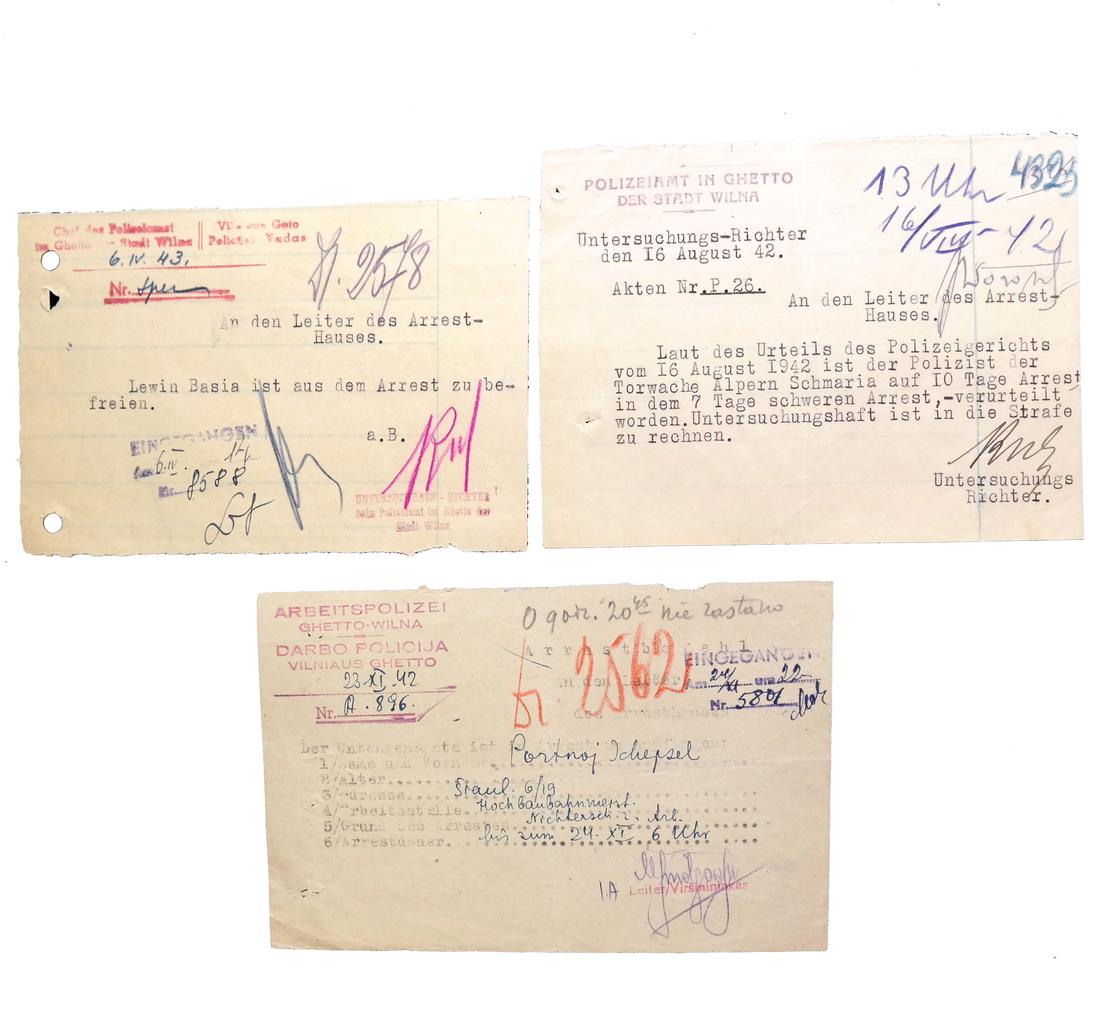 Chef des Polizeiamt
im Ghetto der Stadt Wilna
Vilniaus Geto
Policijos Vadas
6.IV.43.
Nr.
2578
An den Leiter des Arrest-
Hauses.
Lewin Basia ist aus dem Arrest zu be-
freien.
EINGEGANGEN
Am 6.IV. 14
Nr. 8588
a.B.
UNTERSUCHUNGS-RICHTER
beim Polizeiamt im Ghetto der
Stadt Wilna
POLIZEIAMT IN GHETTO
DER STADT WILNA
13 Uhr
16/VIII-42
Untersuchungs-Richter
den I6 August 42.
Akten Nr.P.26.
An den Leiter des Arrest-
Hauses.
Laut des Urteils des Polizeigerichts
vom I6 August I942 ist der Polizist der
Torwache Alpern Schmaria auf IO Tage Arrest
in dem 7 Tage schweren Arrest,-verurteilt
worden.Untersuchungshaft ist in die Strafe
zu rechnen.
Untersuchungs
Richter.
ARBEITSPOLIZEI
GHETTO-WILNA
DARBO POLICIJA
VILNIAUS GHETTO
23 XI 42
Nr. A.896.
O godz. 20 45 nie zastano
Arrestbefehl
2562
An den Leiter
des Arresthauses
EINGEGANGEN
Am 24/XI um 22
Nr. 5801
Der Untengenannte ist
1/Name und Vorname... Portnoj Schepsel
2/Alter
3/Adresse Straul. 6/19
4/Arbeitsstelle Hochbaubahnmerst.
5/Grund des Arrestes Nichtersch. z. Arb.
6/Arrestdauer bis zum 24. XI 6 Uhr
I.A Leiter/Viršinininkas